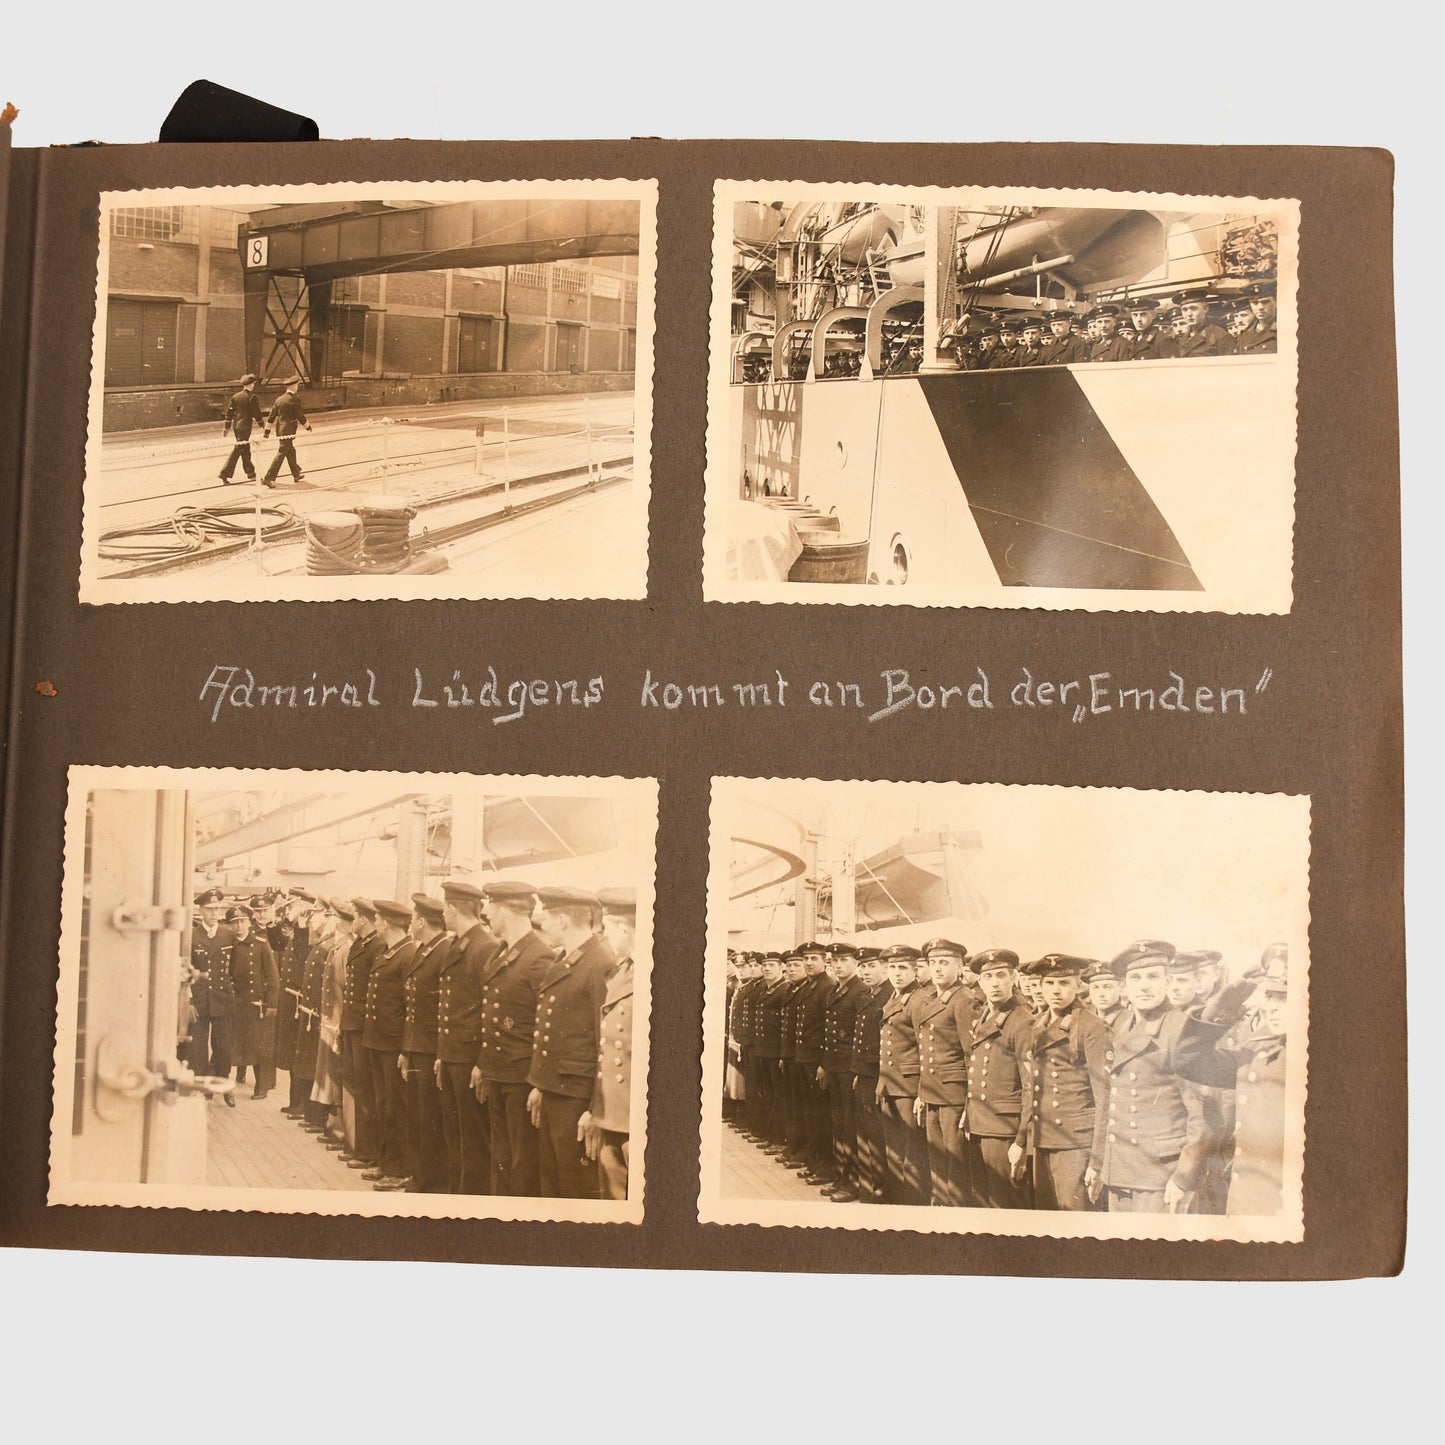 8
Admiral Lüdgens kommt an Bord der „Emden"